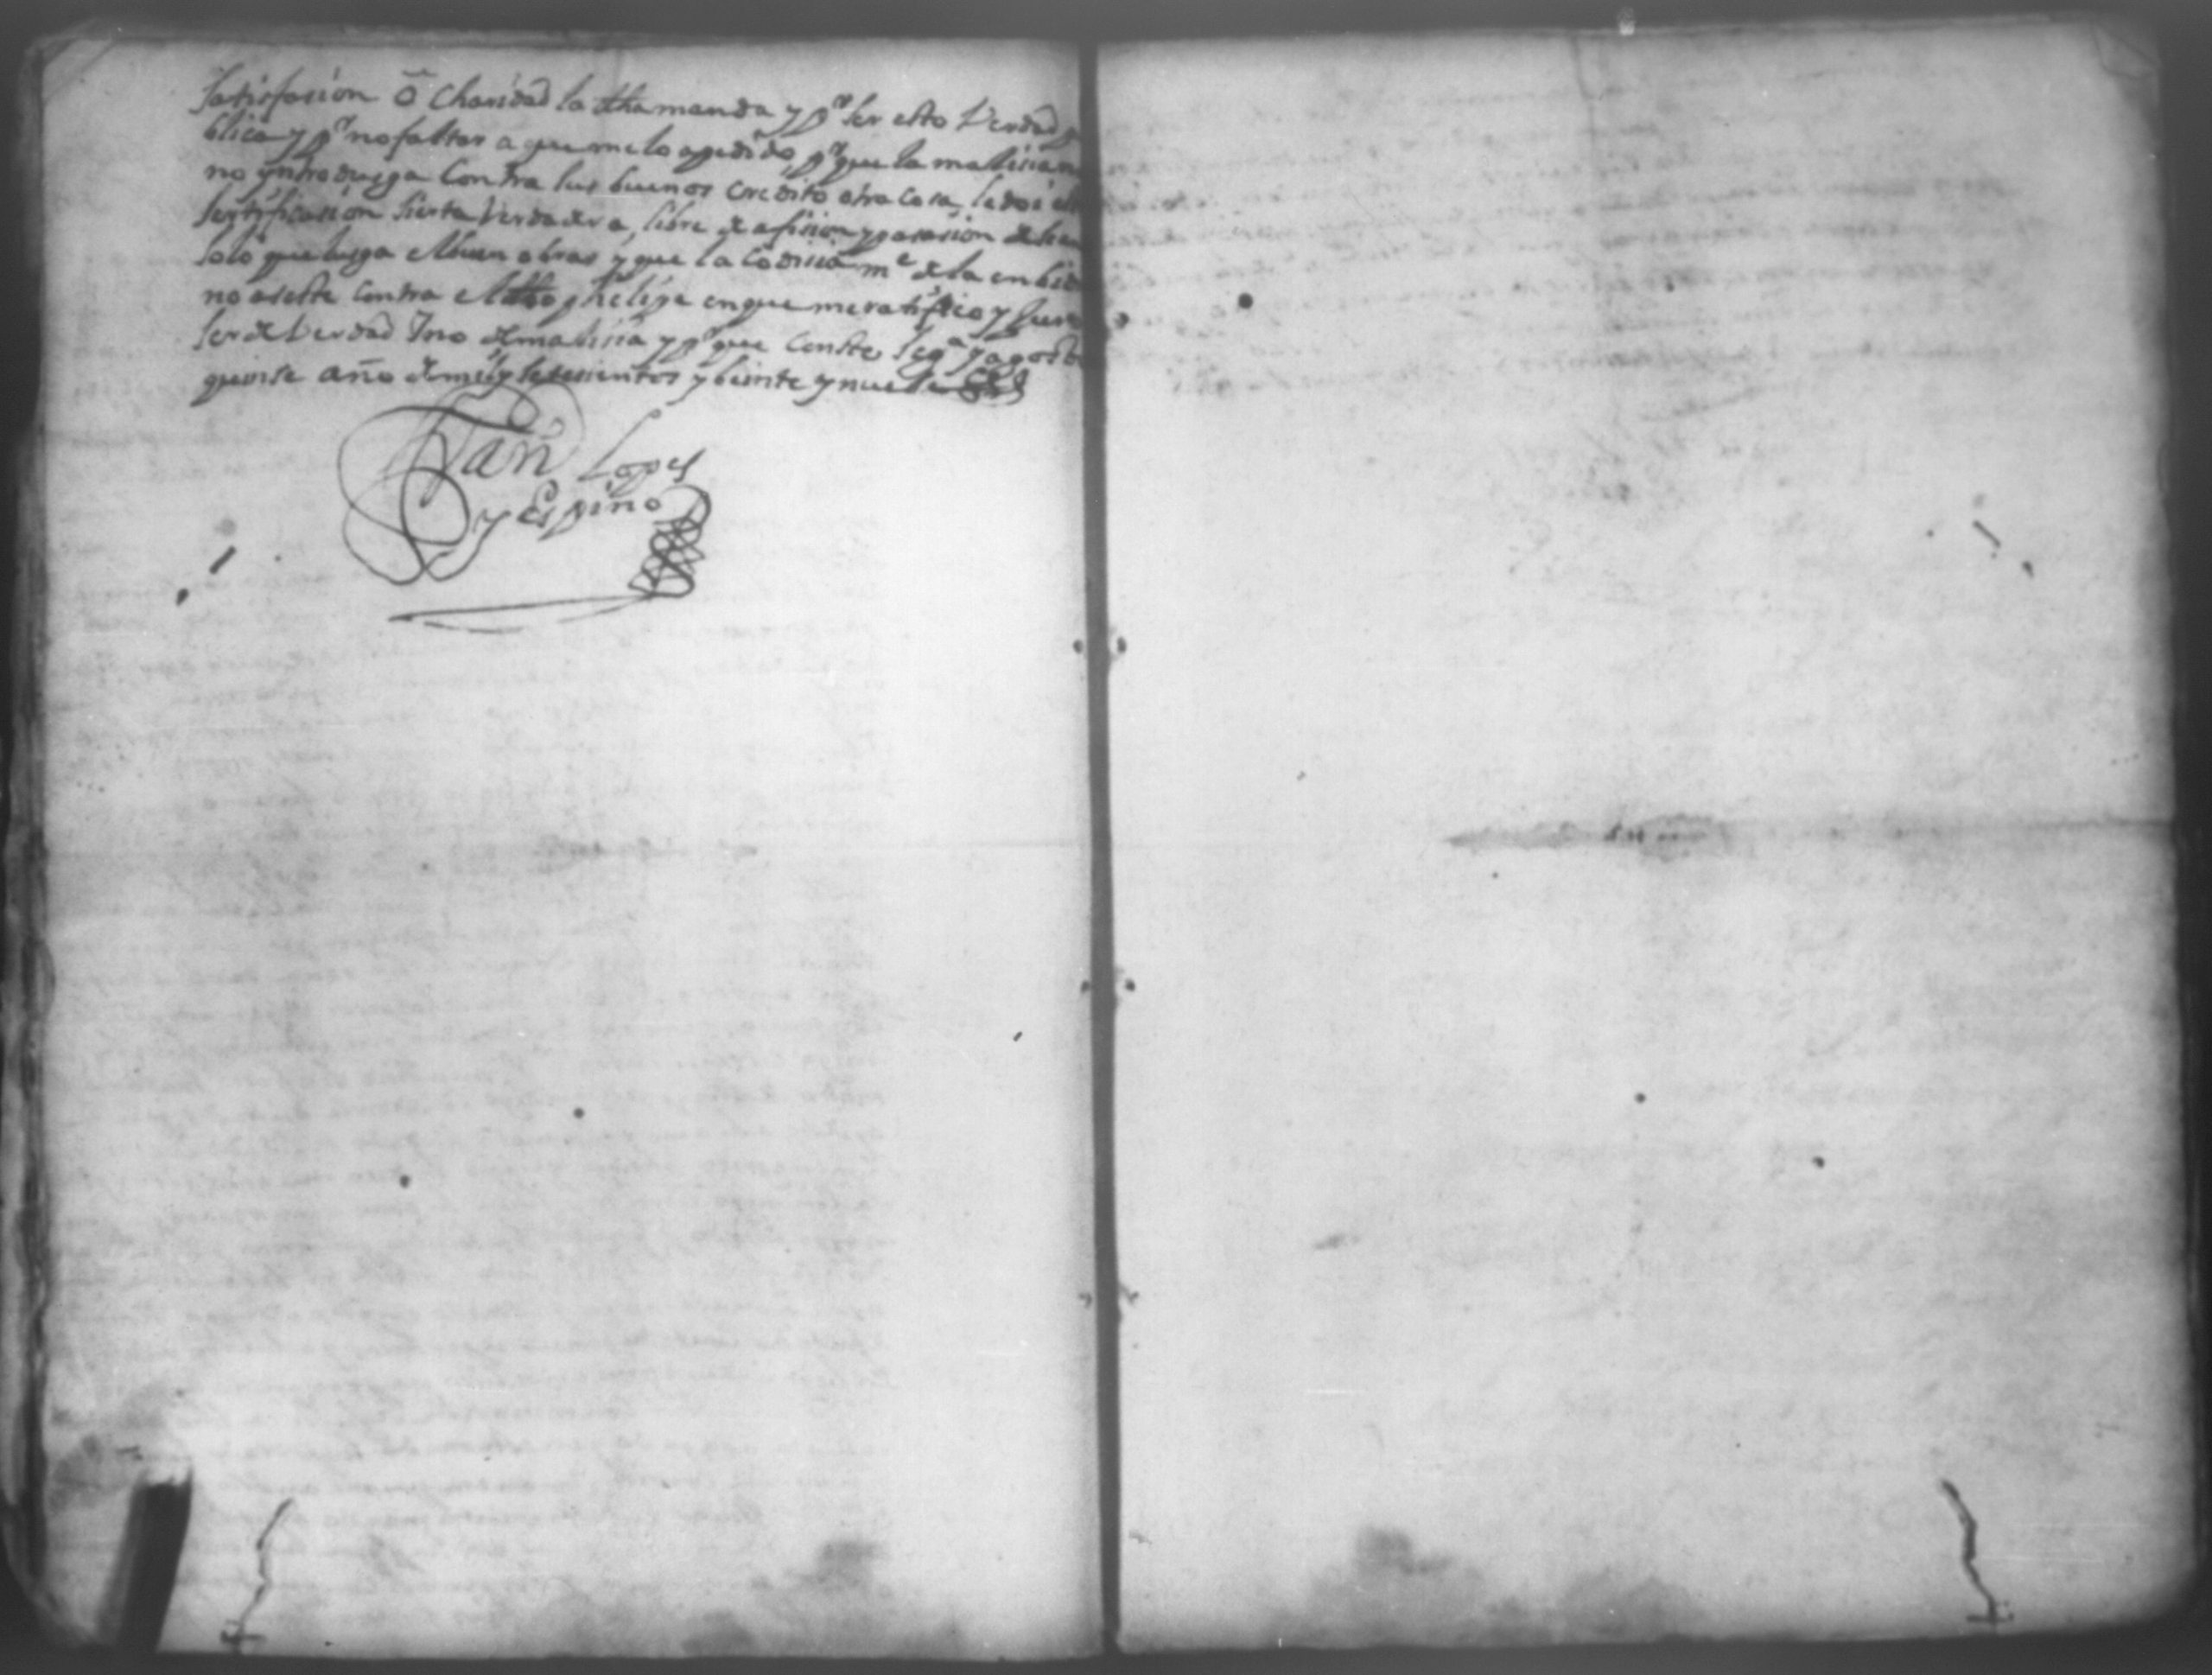 Satisfasion o Charidad la dha manda y pr ser esto Verdad pu
blica y pr no faltar a que me lo a pedido, pr que la malisia
no yntrodusga Contra sus buenos credito otra cosa, le doi
Sertificasion Sierta Verdadera, libre de afision y pasion
solo que lusga el buen obrar, y que la Codisia me de la enbidia
no aseste contra el dho phelipe en que me ratifico y Juro
ser de Verdad Y no de malisia y pr que Conste y agosto
quinse año de mil y setesientos y beinte y nuebe
Jan Lopes
y Espino